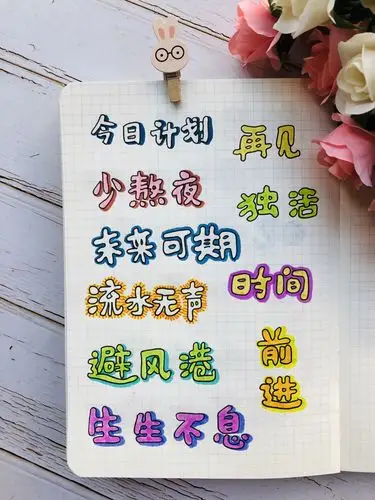 今日计划
少熬夜
未来可期
流水无声
避风港
生生不息
再见
独活
时间
前
进